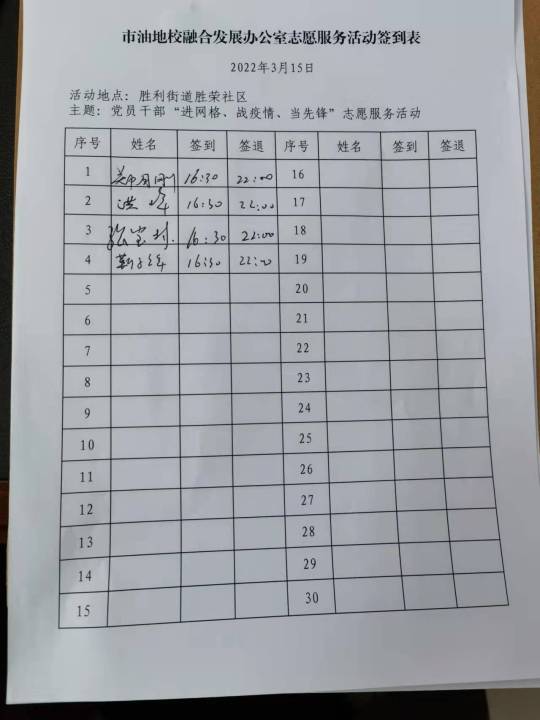 市油地校融合发展办公室志愿服务活动签到表
2022年3月15日
活动地点：胜利街道胜荣社区
主题：党员干部“进网格、战疫情、当先锋”志愿服务活动
序号 姓名 签到 签退 序号 姓名 签到 签退
1 16:30 22:00 16
2 洪峰 16:30 22:00 17
3 16:30 22:00 18
4 16:30 22:00 19
5 20
6 21
7 22
8 23
9 24
10 25
11 26
12 27
13 28
14 29
15 30